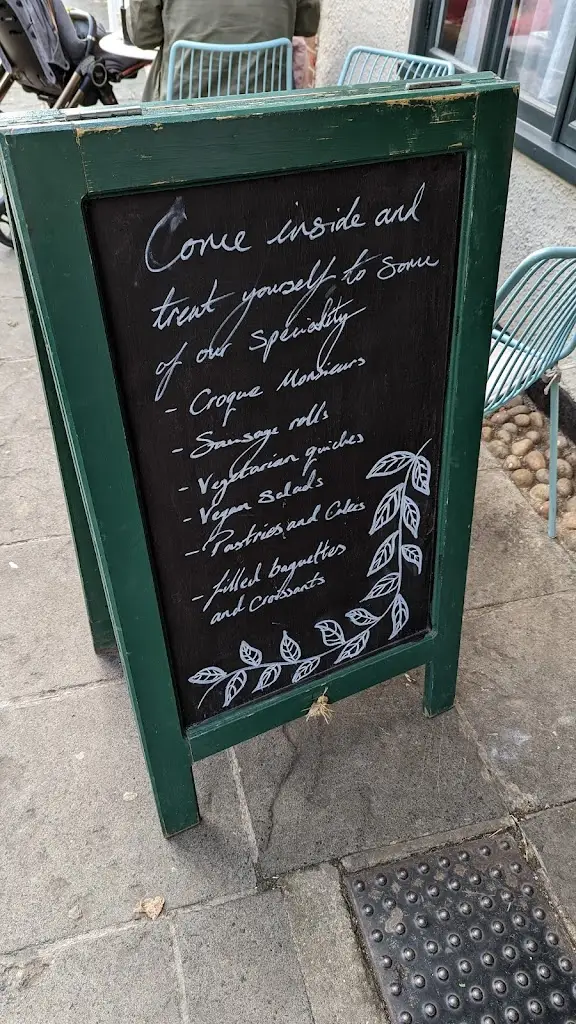 Come inside and
treat yourself to some
of our speciality
- Croque Monsieurs
- Sausage rolls
- Vegetarian quiches
- Vegan Salads
- Pastries and Cakes
- filled baguettes
and Croissants